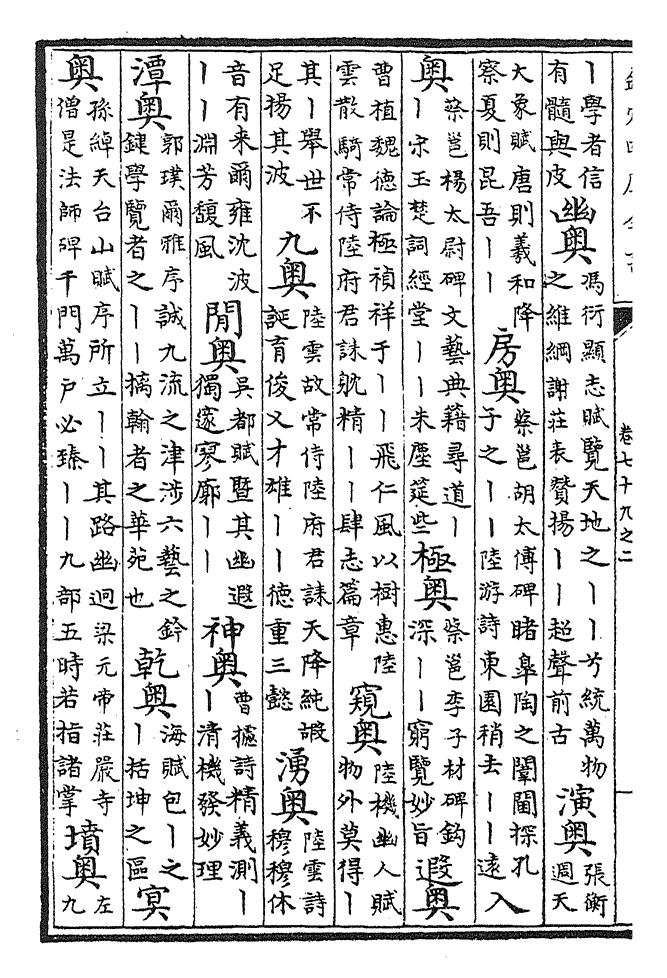 卷七十九之二
丨學者信有髓與皮幽奥馮衍顯志賦覽天地之丨丨兮統萬物之維綱謝莊表贊揚丨丨超聲前古演奥張衡週天
大象賦唐則羲和降察夏則昆吾丨丨房奥蔡邕胡太傅碑睹皋陶之闡閫探孔子之丨丨陸游詩東園稍去丨丨遠入
奥蔡邕楊太尉碑文藝典籍尋道丨丨宋玉楚詞經堂丨丨朱塵筵些極奥蔡邕李子材碑鈎深丨丨窮覽妙旨遐奥
曹植魏德論極禎祥于丨丨飛仁風以樹惠陸雲散騎常侍陸府君誄躭精丨丨肆志篇章窺奥陸機幽人賦物外莫得丨
其丨舉世不足揚其波九奥陸雲故常侍陸府君誄天降純嘏誕育俊乂才雄丨丨德重三懿湧奥陸雲詩穆穆休
音有来爾雍沈波丨丨淵芳馥風閒奥吳都賦暨其幽遐獨邃寥廓丨丨神奥曹攄詩精義測丨丨清機發妙理
潭奥郭璞爾雅序誠九流之津涉六藝之鈐鍵學覽者之丨丨摛翰者之華苑也乾奥海賦包丨之丨括坤之區冥
奥孫綽天台山賦序所立丨丨其路幽迥梁元帝莊嚴寺僧是法師碑千門萬户必臻丨丨九部五時若指諸掌墳奥左九